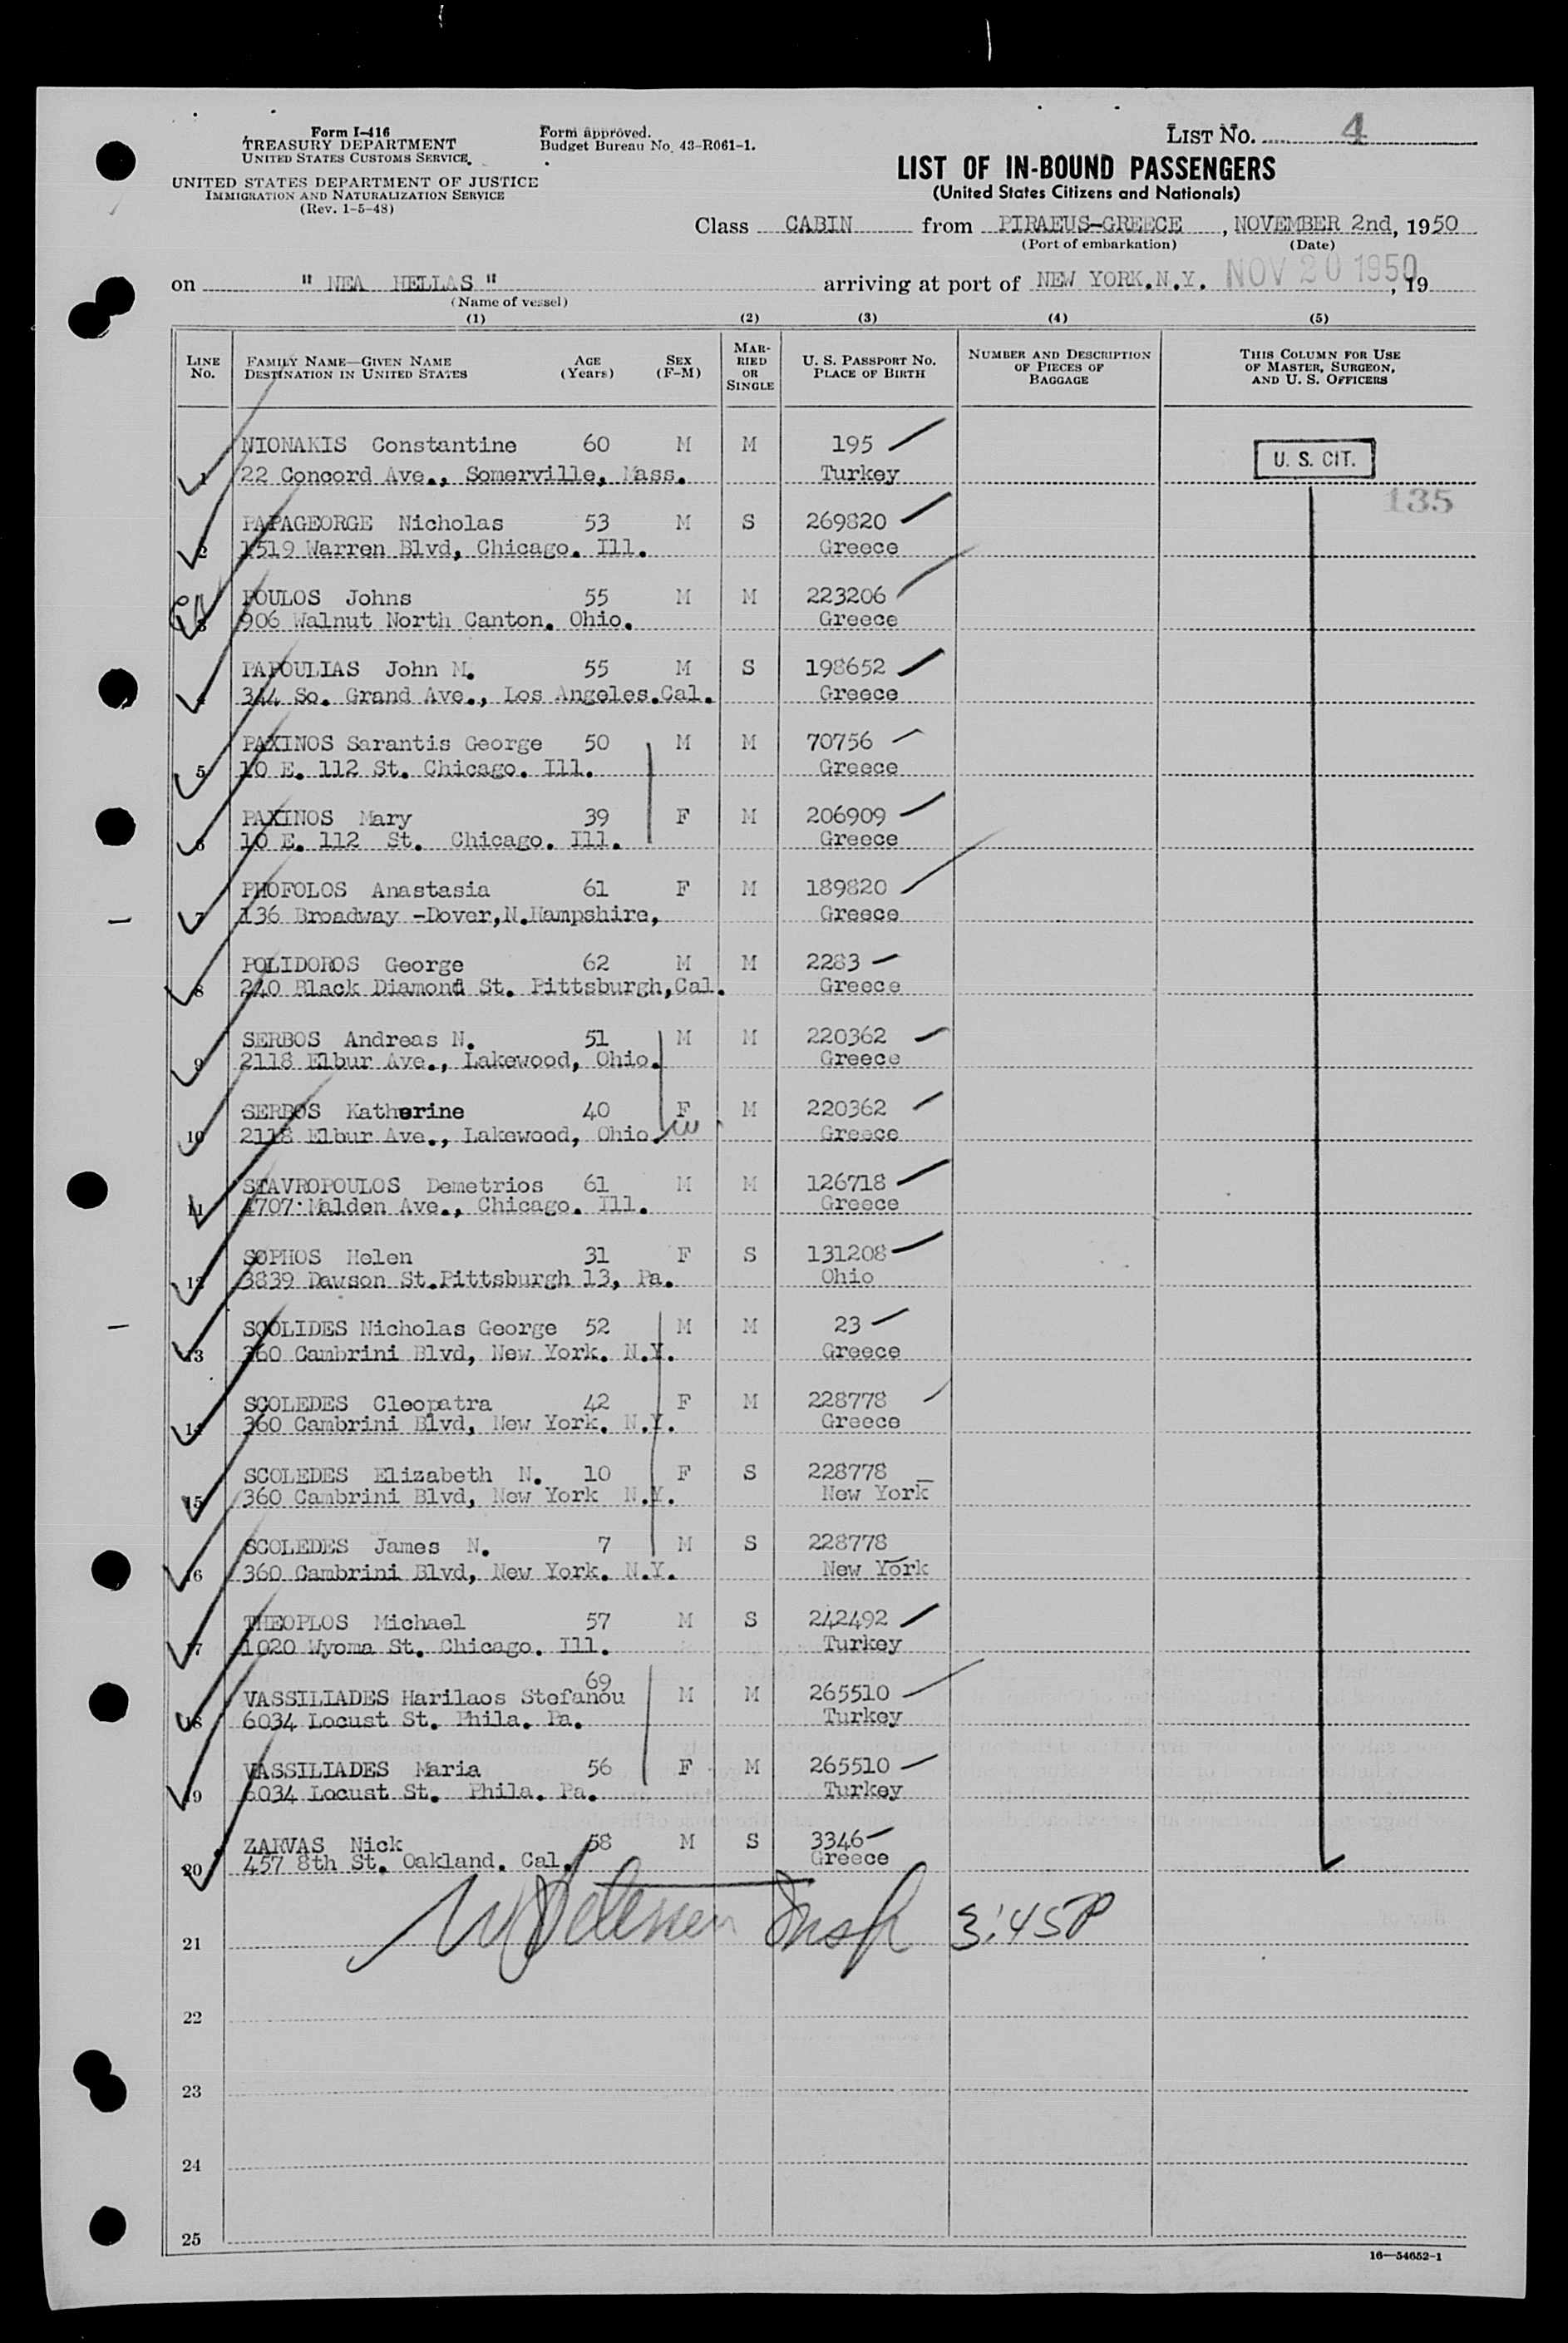 Form I-416
TREASURY DEPARTMENT
UNITED STATES CUSTOMS SERVICE
UNITED STATES DEPARTMENT OF JUSTICE
IMMIGRATION AND NATURALIZATION SERVICE
(Rev. 1-5-48)
Form approved.
Budget Bureau No. 43-R061-1.
LIST NO. 4
LIST OF IN-BOUND PASSENGERS
(United States Citizens and Nationals)
Class CABIN from PIRAEUS-GREECE, NOVEMBER 2nd, 1950
(Port of embarkation) (Date)
on " NEA HELLAS " arriving at port of NEW YORK.N.Y. NOV 20 1950, 19
(Name of vessel)
(1) (2) (3) (4) (5)
LINE No. FAMILY NAME—GIVEN NAME DESTINATION IN UNITED STATES AGE (Years) SEX (F-M) MARRIED OR SINGLE U. S. PASSPORT NO. PLACE OF BIRTH NUMBER AND DESCRIPTION OF PIECES OF BAGGAGE THIS COLUMN FOR USE OF MASTER, SURGEON, AND U. S. OFFICERS
NIONAKIS Constantine 60 M M 195
1 22 Concord Ave., Somerville, Mass. Turkey U. S. CIT.
135
PAPAGEORGE Nicholas 53 M S 269820
2 1519 Warren Blvd, Chicago. Ill. Greece
POULOS Johns 55 M M 223206
3 906 Walnut North Canton. Ohio. Greece
PAPOULIAS John M. 55 M S 198652
4 344 So. Grand Ave., Los Angeles.Cal. Greece
PAXINOS Sarantis George 50 M M 70756
5 10 E. 112 St. Chicago. Ill. Greece
PAXINOS Mary 39 F M 206909
6 10 E. 112 St. Chicago. Ill. Greece
PHOFOLOS Anastasia 61 F M 189820
7 136 Broadway -Dover,N.Hampshire, Greece
POLIDOROS George 62 M M 2283
8 240 Black Diamond St. Pittsburgh,Cal. Greece
SERBOS Andreas N. 51 M M 220362
9 2118 Elbur Ave., Lakewood, Ohio. Greece
SERBOS Katherine 40 F M 220362
10 2118 Elbur Ave., Lakewood, Ohio. Greece
STAVROPOULOS Demetrios 61 M M 126718
11 4707 Malden Ave., Chicago. Ill. Greece
SOPHOS Helen 31 F S 131208
12 3839 Dawson St.Pittsburgh 13, Pa. Ohio
SCOLIDES Nicholas George 52 M M 23
13 360 Cambrini Blvd, New York. N.Y. Greece
SCOLEDES Cleopatra 42 F M 228778
14 360 Cambrini Blvd, New York. N.Y. Greece
SCOLEDES Elizabeth N. 10 F S 228778
15 360 Cambrini Blvd, New York N.Y. New York
SCOLEDES James N. 7 M S 228778
16 360 Cambrini Blvd, New York. N.Y. New York
THEOPLOS Michael 57 M S 242492
17 1020 Wyoma St. Chicago. Ill. Turkey
VASSILIADES Harilaos Stefanou 69 M M 265510
18 6034 Locust St. Phila. Pa. Turkey
VASSILIADES Maria 56 F M 265510
19 6034 Locust St. Phila. Pa. Turkey
ZARVAS Nick 58 M S 3346
20 457 8th St. Oakland. Cal. Greece
21 Insp 3:45P
22
23
24
25
16—54652-1